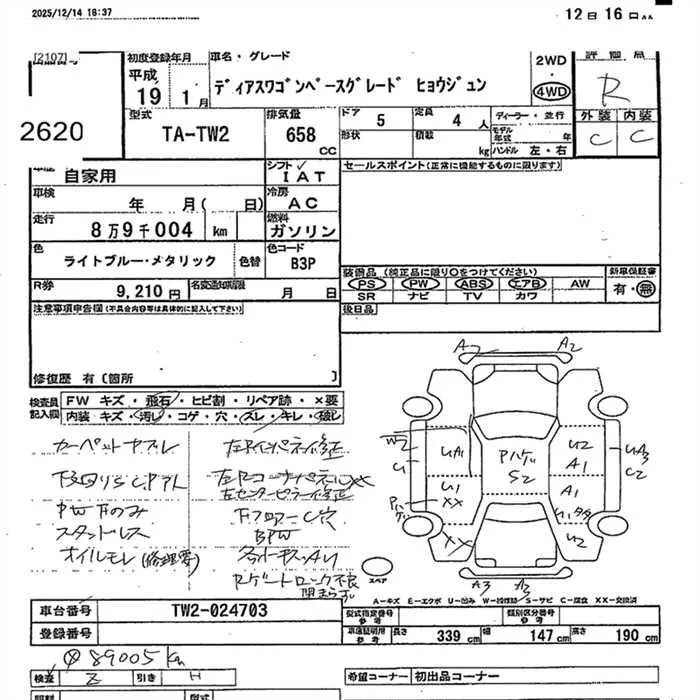 2025/12/14 18:37
12日 16日
[2107]
2620
初度登録年月
平成
19 1月
車名・グレード
ディアスワゴンベースグレード ヒョウジュン
2WD
4WD
評価点
R
型式
TA-TW2
排気量
658
CC
ドア
5
定員
4 人
形状
積載
kg
ディーラー・並行
モデル年式 年
ハンドル 左・右
外装 内装
C C
自家用
シフト
IAT
セールスポイント(正常に機能するものに限ります)
車検
年 月( 日)
冷房
AC
走行
8万9千004 km
燃料
ガソリン
色
ライトブルー・メタリック
色替
色コード
B3P
装備品(純正品に限り〇をつけてください)
PS PW ABS エアB AW
SR ナビ TV カワ
新車保証書
有・無
R券
9,210円
名変遅切期限
月 日
注意事項申告欄(不具合内容等は具体的に記入して下さい)
後日品
修復歴 有〔箇所 〕
検査員記入欄
FW キズ・飛石・ヒビ割・リペア跡・×要
内装 キズ・汚レ・コゲ・穴・スレ・キレ・破レ
カーペットヤブレ
PWドのみ
スタットレス
オイルモレ(修理要)
左Rインパネ修正
左センターピラー修正
下フロアーC穴
BPW
Rゲートロック不良
閉まらず
A2
W2
U1
UA1
U1
XX
XX
Pハゲ
Pハゲ
S2
U2
A1
A1
U2
UA3
C2
A3
スペア
A-キズ E-エクボ U-凹み W-補修跡 S-サビ C-腐食 XX-交換済
車台番号
TW2-024703
登録番号
型式指定番号
参考
類別区分番号
参考
車庫証明用
参考
長さ 339 cm
幅 147 cm
高さ 190 cm
89005 km
検査 Z 引き H
希望コーナー 初出品コーナー
型式